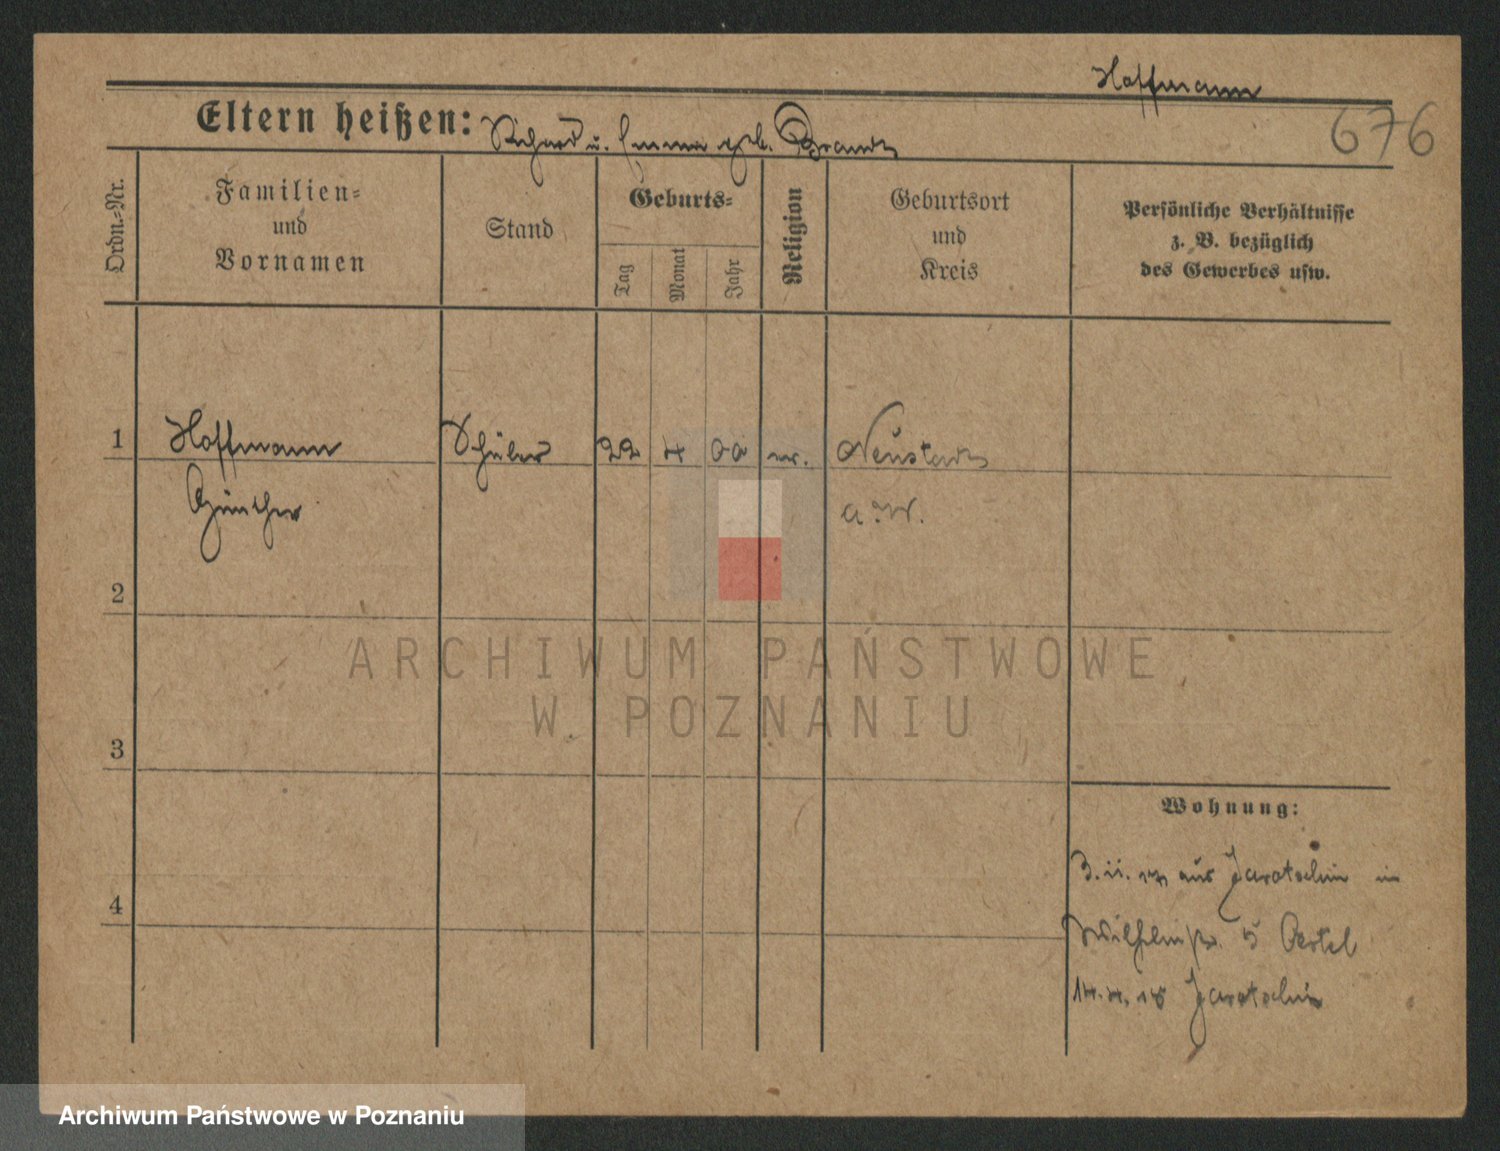 Hoffmann
676
Eltern heißen: Richard u. Emma geb. Brandt
Ordn.-Nr.
Familien-
und
Vornamen
Stand
Geburts-
Tag
Monat
Jahr
Religion
Geburtsort
und
Kreis
Persönliche Verhältnisse
z. B. bezüglich
des Gewerbes usw.
1
Hoffmann
Schüler
22
4
00
Neustadt
Günther
a. W.
2
ARCHIWUM PAŃSTWOWE
W POZNANIU
3
Wohnung:
aus Jarotschin in
4
Wilhelmstr. 5 Oertel
14.4.18 Jarotschin
Archiwum Państwowe w Poznaniu